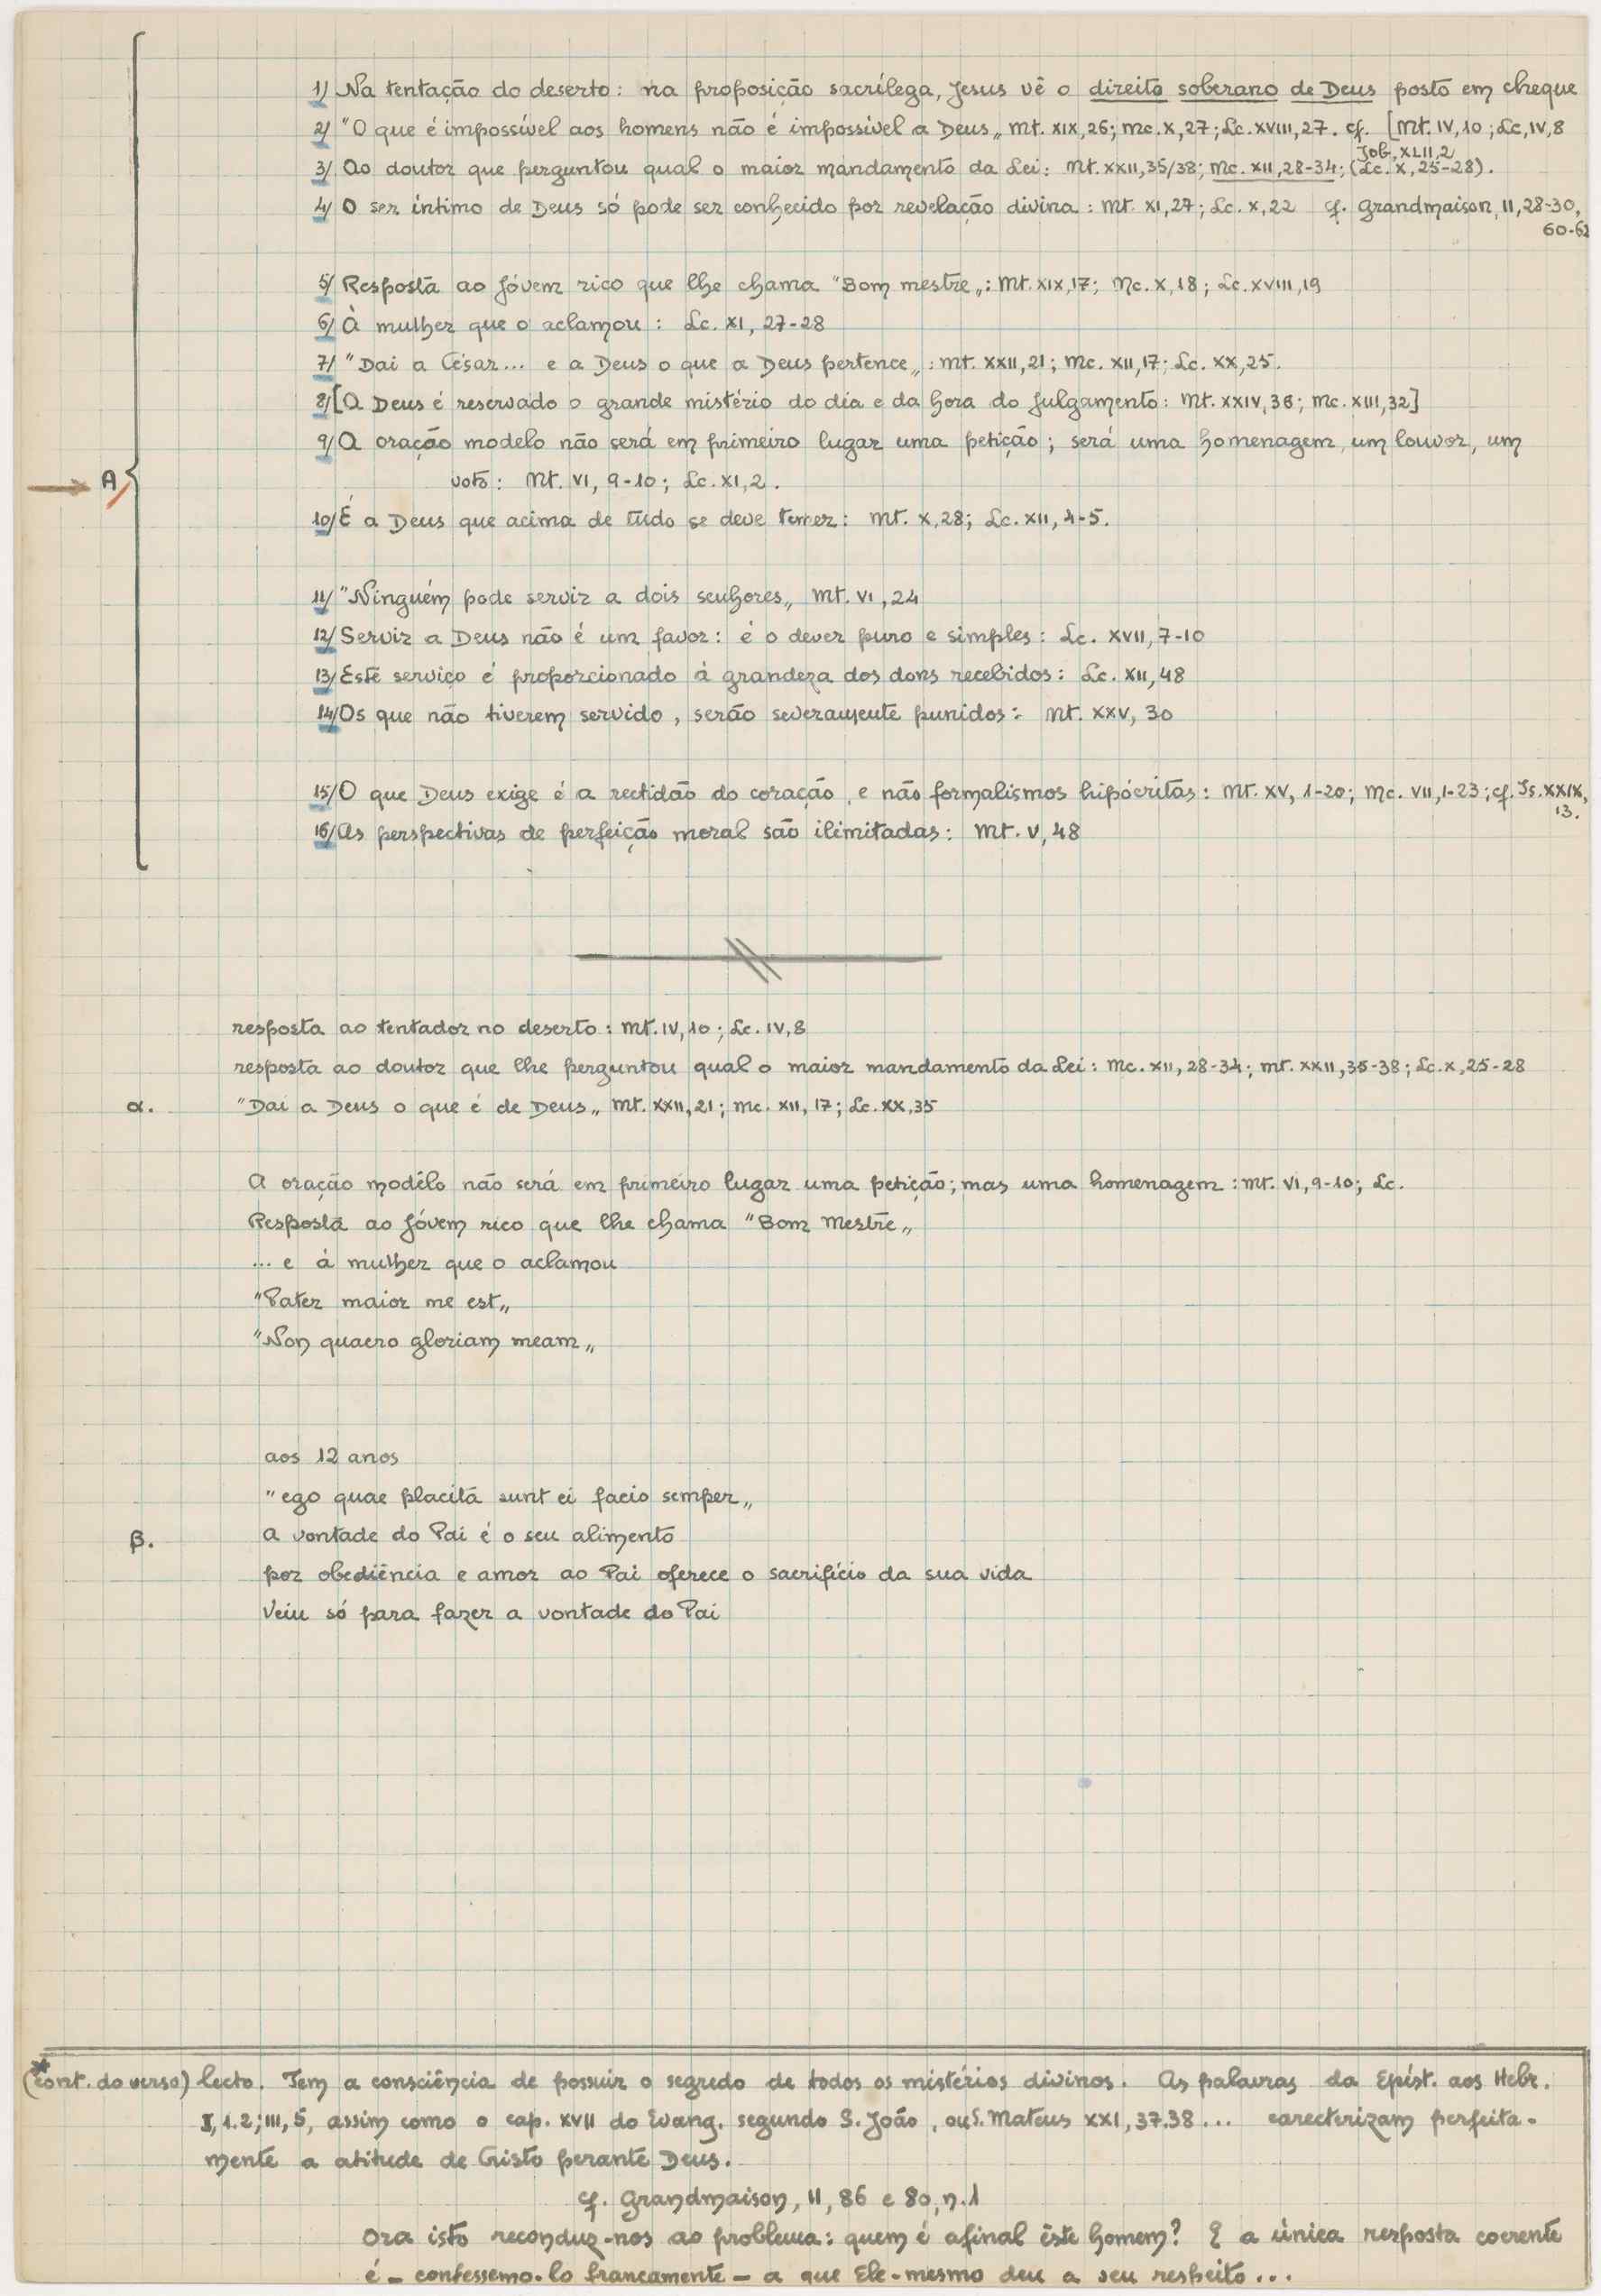 1) Na tentação do deserto: na proposição sacrílega, Jesus vê o direito soberano de Deus posto em cheque
2) "O que é impossível aos homens não é impossível a Deus„ Mt. XIX,26; Mc. X,27; Lc. XVIII,27. cf. [Mt. IV,10; Lc, IV,8
Job, XLII,2
3) Ao doutor que perguntou qual o maior mandamento da Lei: Mt. XXII,35/38; Mc. XII,28-34; (Lc. X,25-28).
4) O ser íntimo de Deus só pode ser conhecido por revelação divina: Mt. XI,27; Lc. X,22 cf. Grandmaison, II,28-30,
60-62
5) Resposta ao jóvem rico que lhe chama "Bom mestre„: Mt. XIX,17; Mc. X,18; Lc. XVIII,19
6) À mulher que o aclamou: Lc. XI, 27-28
7) "Dai a César... e a Deus o que a Deus pertence„: Mt. XXII,21; Mc. XII,17; Lc. XX,25.
8) [A Deus é reservado o grande mistério do dia e da hora do julgamento: Mt. XXIV,36; Mc. XIII,32]
9) A oração modelo não será em primeiro lugar uma petição; será uma homenagem, um louvor, um
A
voto: Mt. VI, 9-10; Lc. XI,2.
10) É a Deus que acima de tudo se deve temer: Mt. X,28; Lc. XII, 4-5.
11) "Ninguém pode servir a dois senhores„ Mt. VI,24
12) Servir a Deus não é um favor: é o dever puro e simples: Lc. XVII, 7-10
13) Este serviço é proporcionado à grandeza dos dons recebidos: Lc. XII,48
14) Os que não tiverem servido, serão severamente punidos: Mt. XXV, 30
15) O que Deus exige é a rectidão do coração, e não formalismos hipócritas: Mt. XV, 1-20; Mc. VII,1-23; cf. Is. XXIX,
13.
16) As perspectivas de perfeição moral são ilimitadas: Mt. V,48
resposta ao tentador no deserto: Mt. IV,10; Lc. IV,8
resposta ao doutor que lhe perguntou qual o maior mandamento da Lei: Mc. XII, 28-34; Mt. XXII,35-38; Lc. X,25-28
α. "Dai a Deus o que é de Deus„ Mt. XXII,21; Mc. XII, 17; Lc. XX,35
A oração modêlo não será em primeiro lugar uma petição; mas uma homenagem: Mt. VI, 9-10; Lc.
Resposta ao jóvem rico que lhe chama "Bom Mestre„
... e à mulher que o aclamou
"Pater maior me est„
"Non quaero gloriam meam„
aos 12 anos
"ego quae placita sunt ei facio semper„
β. a vontade do Pai é o seu alimento
por obediência e amor ao Pai oferece o sacrifício da sua vida
Veiu só para fazer a vontade do Pai
*
(cont. do verso) lecto. Tem a consciência de possuir o segredo de todos os mistérios divinos. As palavras da Epíst. aos Hebr.
I,1.2; III, 5, assim como o cap. XVII do Evang. segundo S. João, ou S. Mateus XXI, 37.38... carecterizam perfeita-
mente a atitude de Cristo perante Deus.
cf. Grandmaison, II, 86 e 80, n.1
Ora isto reconduz-nos ao problema: quem é afinal êste homem? E a única resposta coerente
é - confessemo-lo francamente - a que Ele-mesmo deu a seu respeito...